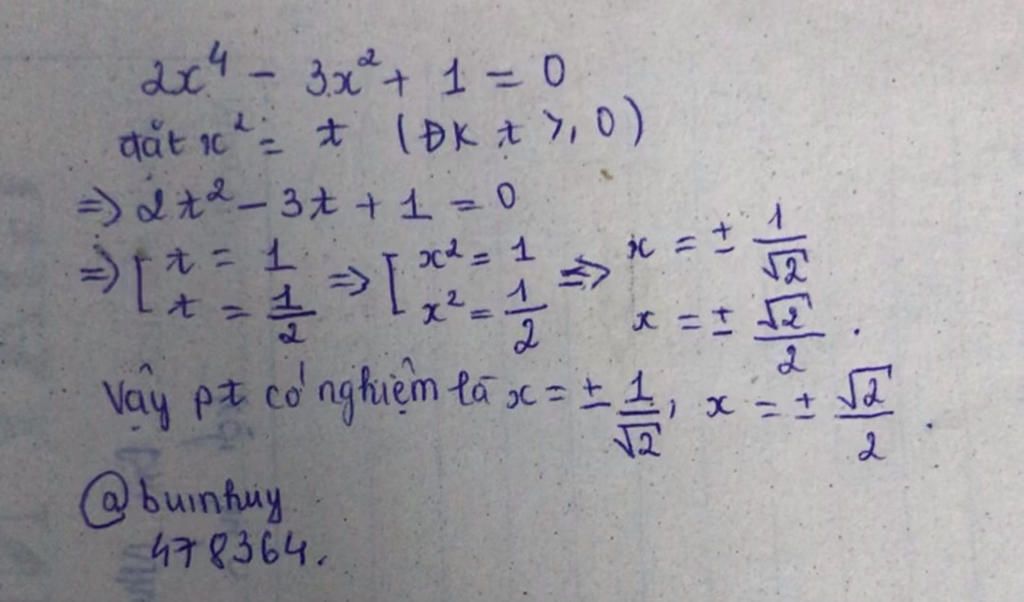 2x⁴ - 3x² + 1 = 0
đặt x² = t (ĐK t ≥ 0)
=> 2t² - 3t + 1 = 0
=> [ t = 1 => [ x² = 1 <=> x = ± 1/√2
t = 1/2 x² = 1/2 x = ± √2/2 .
Vậy pt có nghiệm là x = ± 1/√2 , x = ± √2/2 .
@buinhuy
478364.